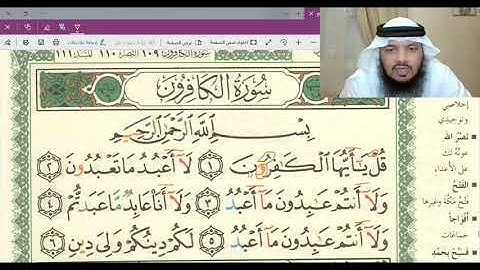 سُورَةُ الكَافِرُونَ ١٠٩ النصر ١١٠ المسد ١١١
سُورَةُ الكَافِرُونَ
بِسْمِ اللَّهِ الرَّحْمَٰنِ الرَّحِيمِ
قُلْ يَٰٓأَيُّهَا ٱلْكَٰفِرُونَ ١ لَآ أَعْبُدُ مَا تَعْبُدُونَ ٢
وَلَآ أَنتُمْ عَٰبِدُونَ مَآ أَعْبُدُ ٣ وَلَآ أَنَا۠ عَابِدٌ مَّا عَبَدتُّمْ ٤
وَلَآ أَنتُمْ عَٰبِدُونَ مَآ أَعْبُدُ ٥ لَكُمْ دِينُكُمْ وَلِىَ دِينِ ٦
إخلاصي
وتوحيدي
نَصْرُ اللهِ
عونُهُ لك
على الأعداءِ
الفَتْحُ
فتحُ مكّةَ وغيرها
أَفْوَاجًا
جماعات
فَسَبِّحْ بِحَمْدِ